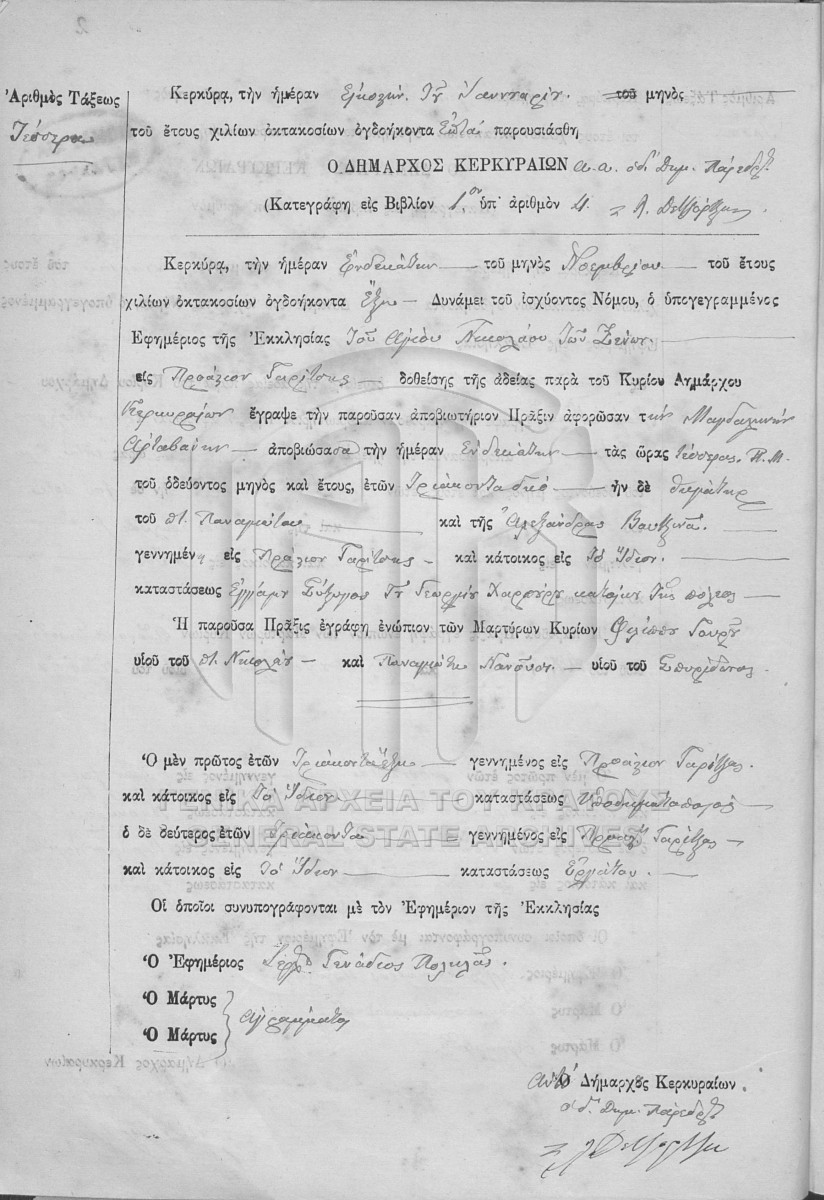 2
Ἀριθμὸς Τάξεως
Τέσσερα
Κερκύρᾳ, τὴν ἡμέραν Εἰκοστὴν Ἰαννουαρίου τοῦ μηνὸς
τοῦ ἔτους χιλίων ὀκτακοσίων ὀγδοήκοντα Ἑπτὰ παρουσιάσθη
Ο ΔΗΜΑΡΧΟΣ ΚΕΡΚΥΡΑΙΩΝ Α.Α. ὁ δ' Δημ. Πάρεδρος
(Κατεγράφη εἰς Βιβλίον 1ον ὑπ' ἀριθμὸν 4.
Κερκύρᾳ, τὴν ἡμέραν Ἑνδεκάτην τοῦ μηνὸς Νοεμβρίου τοῦ ἔτους
χιλίων ὀκτακοσίων ὀγδοήκοντα Ἕξη Δυνάμει τοῦ ἰσχύοντος Νόμου, ὁ ὑπογεγραμμένος
Ἐφημέριος τῆς Ἐκκλησίας τοῦ Ἁγίου Νικολάου τῶν Ξένων
εἰς Προάστιον Γαρίτσης δοθείσης τῆς ἀδείας παρὰ τοῦ Κυρίου Δημάρχου
Κερκυραίων ἔγραψε τὴν παροῦσαν ἀποβιωτήριον Πρᾶξιν ἀφορῶσαν τὴν Μαγδαληνὴν
Ἀρταβάνην ἀποβιώσασα τὴν ἡμέραν Ἑνδεκάτην τὰς ὥρας τέσσερας Π.Μ.
τοῦ ὁδεύοντος μηνὸς καὶ ἔτους, ἐτῶν Τριάκοντα δύο ἣν δὲ θυγάτηρ
τοῦ πτ. Παναγιώτου καὶ τῆς Ἀλεξάνδρας
γεννημένη εἰς Προάστιον Γαρίτσης καὶ κάτοικος εἰς Τὸ Ἴδιον
καταστάσεως Ἔγγαμη Σύζυγος τοῦ Γεωργίου κατοίκου τῆς πόλεως
Ἡ παροῦσα Πρᾶξις ἐγράφη ἐνώπιον τῶν Μαρτύρων Κυρίων Φιλίππου Γουρῆ
υἱοῦ τοῦ πτ. Νικολάου καὶ Παναγιώτη υἱοῦ τοῦ Σπυρίδωνος
Ὁ μὲν πρῶτος ἐτῶν Τριάκοντα ἕξη γεννημένος εἰς Προάστιον Γαρίτζας
καὶ κάτοικος εἰς Τὸ Ἴδιον καταστάσεως Ὑποδηματοποιὸς
ὁ δὲ δεύτερος ἐτῶν Τριάκοντα γεννημένος εἰς Προάστ. Γαρίτζας
καὶ κάτοικος εἰς Τὸ Ἴδιον καταστάσεως Ἐργάτου
ΓΕΝΙΚΑ ΑΡΧΕΙΑ ΤΟΥ ΚΡΑΤΟΥΣ
GENERAL STATE ARCHIVES
Οἱ ὁποῖοι συνυπογράφονται μὲ τὸν Ἐφημέριον τῆς Ἐκκλησίας
Ὁ Ἐφημέριος Γενάδιος Πολυλᾶς
Ὁ Μάρτυς
Ἀγράμματοι
Ὁ Μάρτυς
Ὁ Δήμαρχος Κερκυραίων
ὁ δ' Δημ. Πάρεδρος